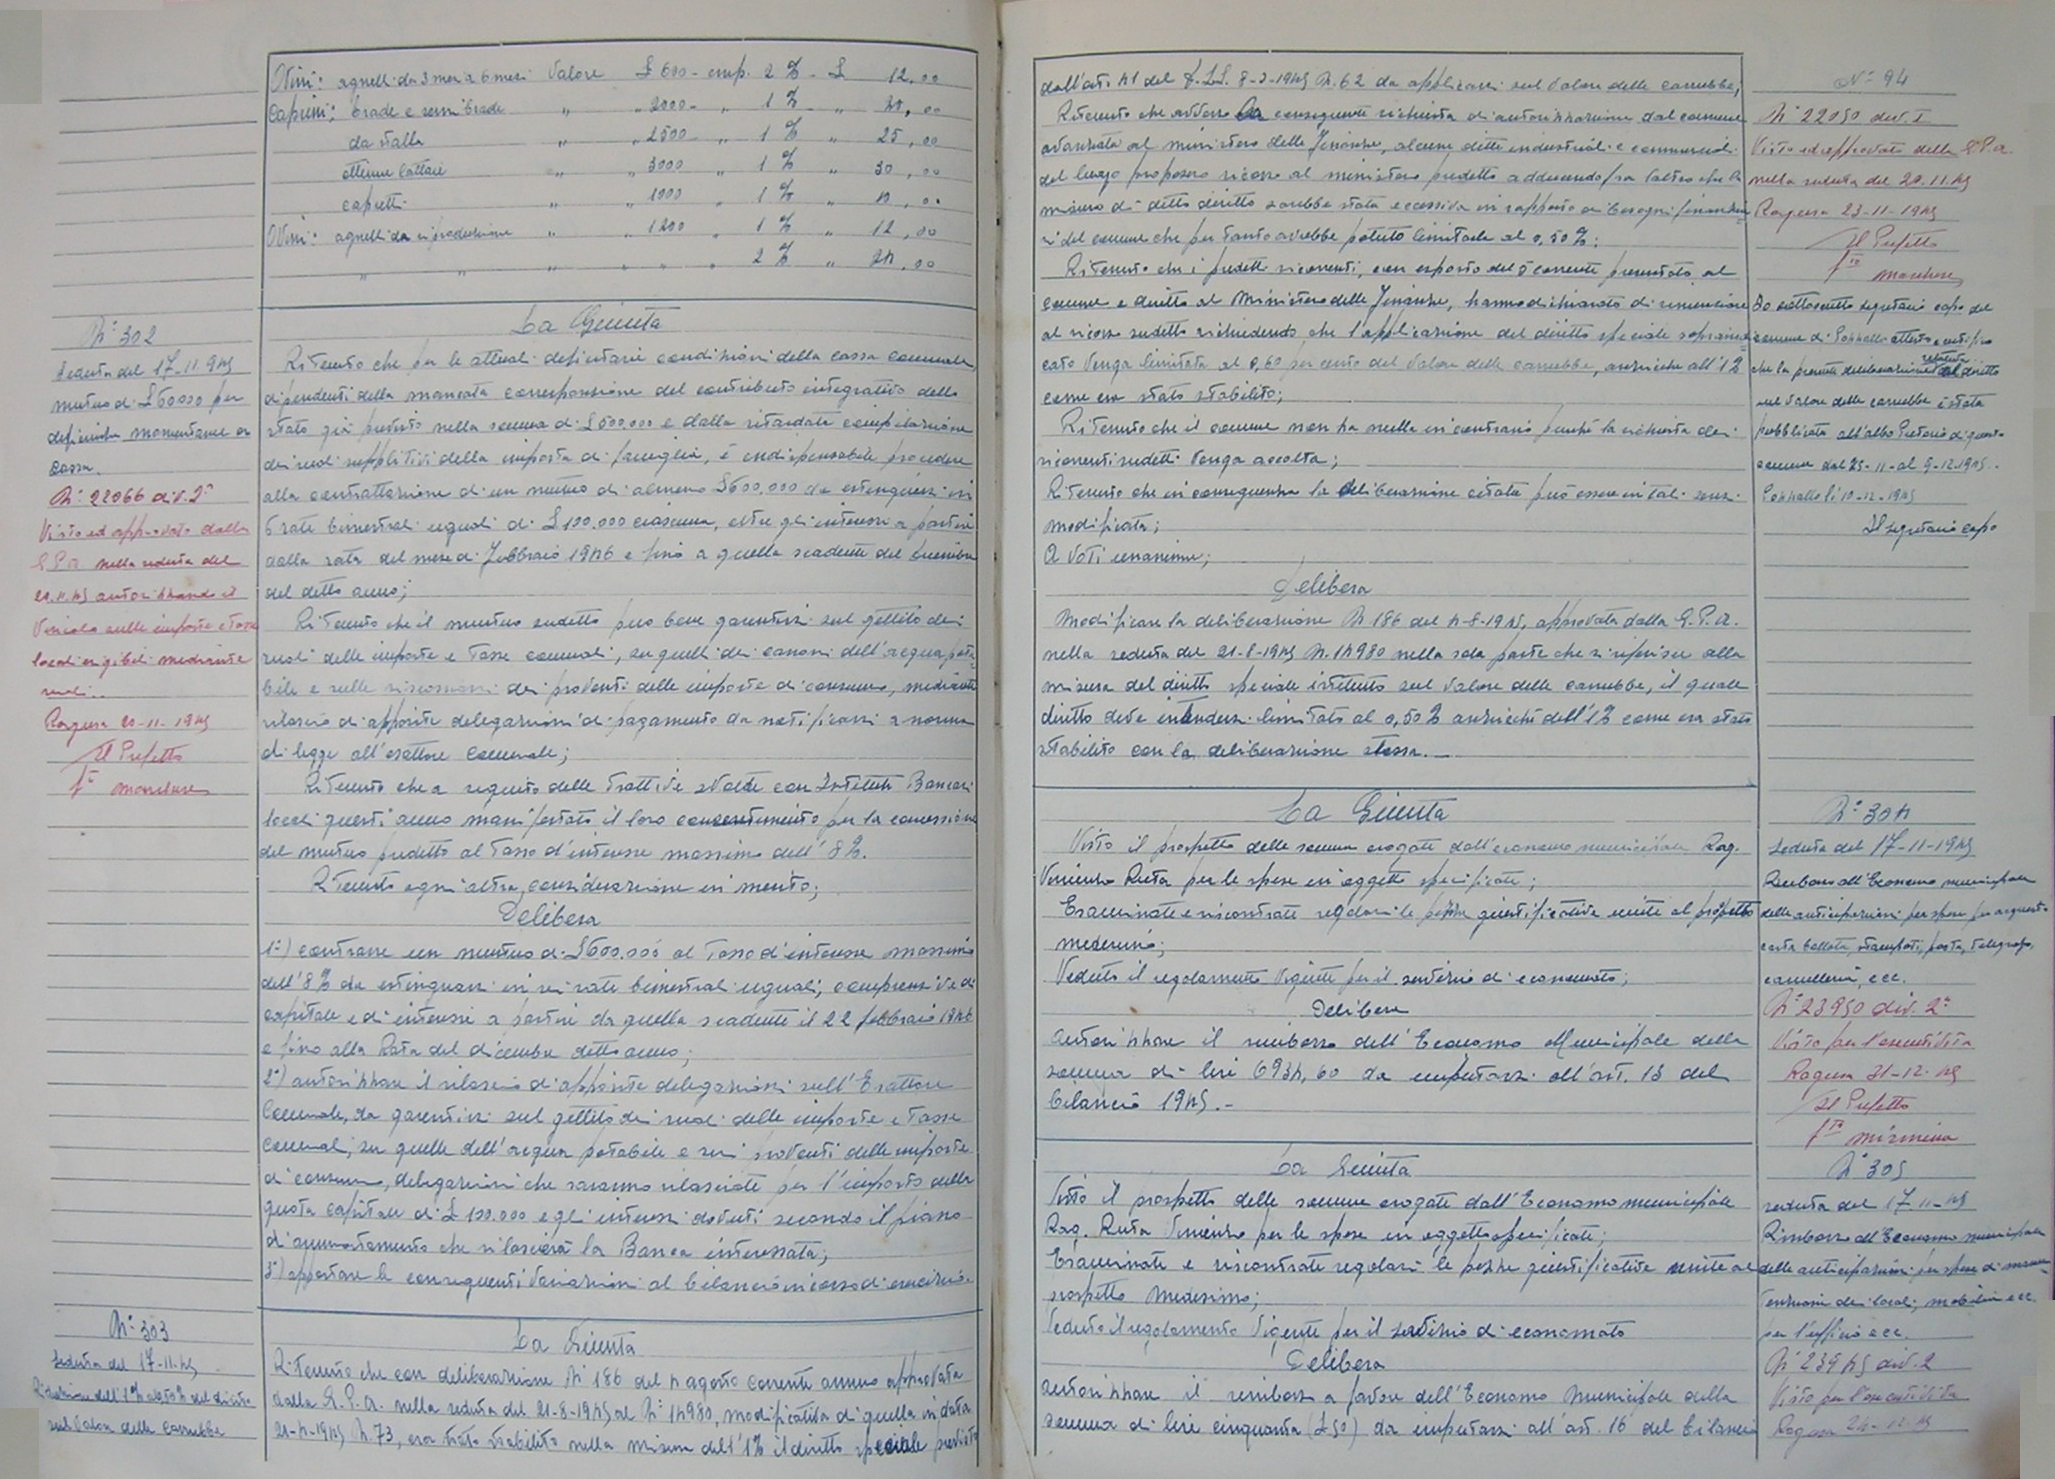 Ovini: agnelli da 3 mesi a 6 mesi Valore £ 600 - imp. 2 % - £ 12,00
Caprini: brade e semi brade " " 2000 - " 1 % " 20,00
da stalla " " 2500 - " 1 % " 25,00
ottime lattaie " " 3000 " 1 % " 30,00
capretti " " 1000 " 1 % " 10,00
Ovini: agnelli da riproduzione " " 1200 " 1 % " 12,00
" " " " " " 2 % " 24,00
N° 302
Seduta del 17-11-945
mutuo di £ 60000 per
deficienze momentanee di
cassa.
N° 22066 div. 2ª
Visto ed approvato dalla
G.P.A. nella seduta del
20.11.45 autorizzando il
Vincolo sulle imposte e tasse
locali esigibili mediante
ruoli..
Ragusa 20-11-1945
Il Prefetto
fto
La Giunta
Ritenuto che per le attuali deficitarie condizioni della cassa comunale
dipendenti della mancata corresponsione del contributo integrativo dello
stato già previsto nella somma di £ 500.000 e dalla ritardata compilazione
dei ruoli suppletivi della imposta di famiglia, è indispensabile procedere
alla contrattazione di un mutuo di almeno £600.000 da estinguersi in
6 rate bimestrali uguali di £ 100.000 ciascuna, oltre gli interessi a partire
dalla rata del mese di Febbraio 1946 e fino a quella scadente del dicembre
del detto anno;
Ritenuto che il mutuo sudetto può bene garentirsi sul gettito dei
ruoli delle imposte e tasse comunali, su quelli dei canoni dell'acqua pota
bile e sulle riscossioni dei proventi delle imposte di consumo, mediante
rilascio di apposite delegazioni di pagamento da notificarsi a norma
di legge all'esattore comunale;
Ritenuto che a seguito delle trattive svolte con Istituti Bancari
locali questi anno manifestato il loro consentimento per la concessione
del mutuo predetto al tasso d'interesse massimo dell' 8%.
Ritenuto ogni altra considerazione in merito;
Delibera
1°) contrarre un mutuo di £600.000 al tasso d'interesse massimo
dell'8% da estinguersi in sei rate bimestrali uguali, comprensive di
capitale e di interessi a partire da quella scadente il 22 febbraio 1946
e fino alla Rata del dicembre detto anno;
2°) autorizzare il rilascio di apposite delegazioni sull'Esattore
Comunale, da garentirsi sul gettito dei ruoli delle imposte e tasse
comunali, su quelle dell'acqua potabile e sui proventi delle imposte
di consumo, delegazioni che saranno rilasciate per l'importo della
quota capitale di £ 100.000 e gli interessi dovuti secondo il piano
di ammortamento che rilascierà la Banca interessata;
3°) apportare le conseguenti variazioni al bilancio in corso di esercizio.
N° 303
Seduta del 17-11-45
Riduzione dell'1% al 0,50% del diritto
sul valore delle carrubbe
La Giunta
Ritenuto che con deliberazione N° 186 del 4 agosto corrente anno approvata
dalla G.P.A. nella seduta del 21-8-1945 al N° 14980, modificativa di quella in data
21-4-1945 N. 73, era stato stabilito nella misura dell'1% il diritto speciale previsto
dall'art. 41 del D.LL. 8-3-1945 N. 62 da applicarsi sul valore delle carrubbe;
Ritenuto che avverso la conseguente richiesta di autorizzazione dal comune
avanzata al ministero delle Finanze, alcune ditte industriali e commerciali
del luogo proposero ricorso al ministero predetto adducendo fra l'altro che la
misura di detto diritto sarebbe stata eccessiva in rapporto ai bisogni finanzia
ri del comune che pertanto avrebbe potuto limitarla al 0,50%;
Ritenuto che i predetti ricorrenti, con esposto del corrente presentato al
comune e diretto al Ministero delle Finanze, hanno dichiarato di rinunciare
al ricorso sudetto richiedendo che l'applicazione del diritto speciale sopraindi
cato venga limitata al 0,60 per cento del valore delle carrubbe, anzicchè all'1%
come era stato stabilito;
Ritenuto che il comune non ha nulla in contrario perchè la richiesta dei
ricorrenti sudetti venga accolta;
Ritenuto che in conseguenza la deliberazione citata può essere in tali sensi
modificata;
A voti unanimi;
Delibera
Modificare la deliberazione N 186 del 4-8-1945, approvata dalla G.P.A.
nella seduta del 21-8-1945 N. 14980 nella sola parte che si riferisce alla
misura del diritto speciale istituito sul valore delle carrubbe, il quale
diritto deve intendersi limitato al 0,50% anzicchè dell'1% come era stato
stabilito con la deliberazione stessa.
N° 94
N° 22050 div. I
Visto ed approvato dalla G.P.A.
nella seduta del 20.11.45
Ragusa 23-11-1945
Il Prefetto
fto
Io sottoscritto segretario capo del
comune di attesto e certifico
che la presente deliberazione relativa al diritto
sul valore delle carrubbe è stata
pubblicata all'albo Pretorio di questo
comune dal 25-11 al 9-12-1945.
li 10-12-1945
Il segretario capo
La Giunta
Visto il prospetto delle somme erogate dall'economo municipale Rag.
Vincenzo Ruta per le spese in oggetto specificate;
Esaminate e riscontrate regolari le pezze giustificative unite al prospetto
medesimo;
Veduto il regolamento vigente per il servizio di economato;
Delibera
Autorizzare il rimborso dell'Economo Municipale della
somma di lire 6934,60 da imputarsi all'art. 13 del
bilancio 1945.-
N° 304
Seduta del 17-11-1945
Rimborso all'Economo municipale
delle anticipazioni per spese per acquisto
carta bollata, stampati, posta, telegrafo,
cancelleria, ecc.
N° 23950 div. 2ª
Visto per l'esecutività
Ragusa 31-12-45
Il Prefetto
fto
La Giunta
Visto il prospetto delle somme erogate dall'Economo municipale
Rag. Ruta Vincenzo per le spese in oggetto specificate;
Esaminate e riscontrate regolari le pezze giustificative unite al
prospetto medesimo;
Veduto il regolamento vigente per il servizio di economato
Delibera
Autorizzare il rimborso a favore dell'Economo Municipale della
somma di lire cinquanta (£50) da imputarsi all'art. 16 del bilancio
N° 305
seduta del 17-11-45
Rimborso all'Economo municipale
delle anticipazioni per spese di manu
tenzioni dei locali, mobilio ecc.
per l'ufficio ecc.
N° 23945 div. 2
Visto per l'esecutività
Ragusa 24-12-45